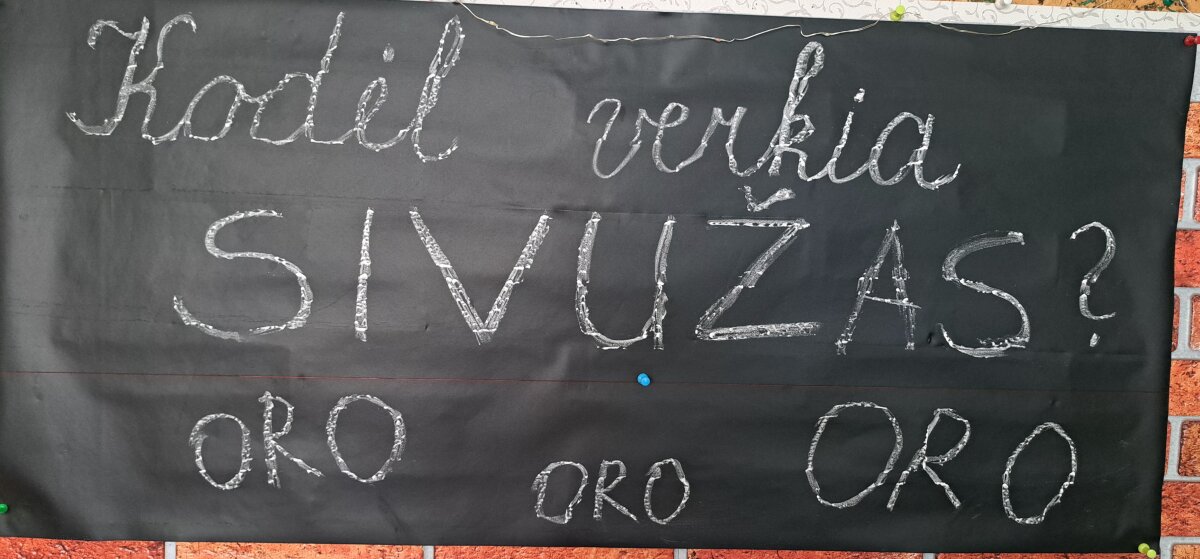 Kodėl verkia
SIVUŽAS?
ORO ORO ORO